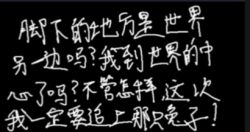 脚下的地方是世界
另一边吗？我到世界的中
心了吗？不管怎样，这次
我一定要追上那只兔子！